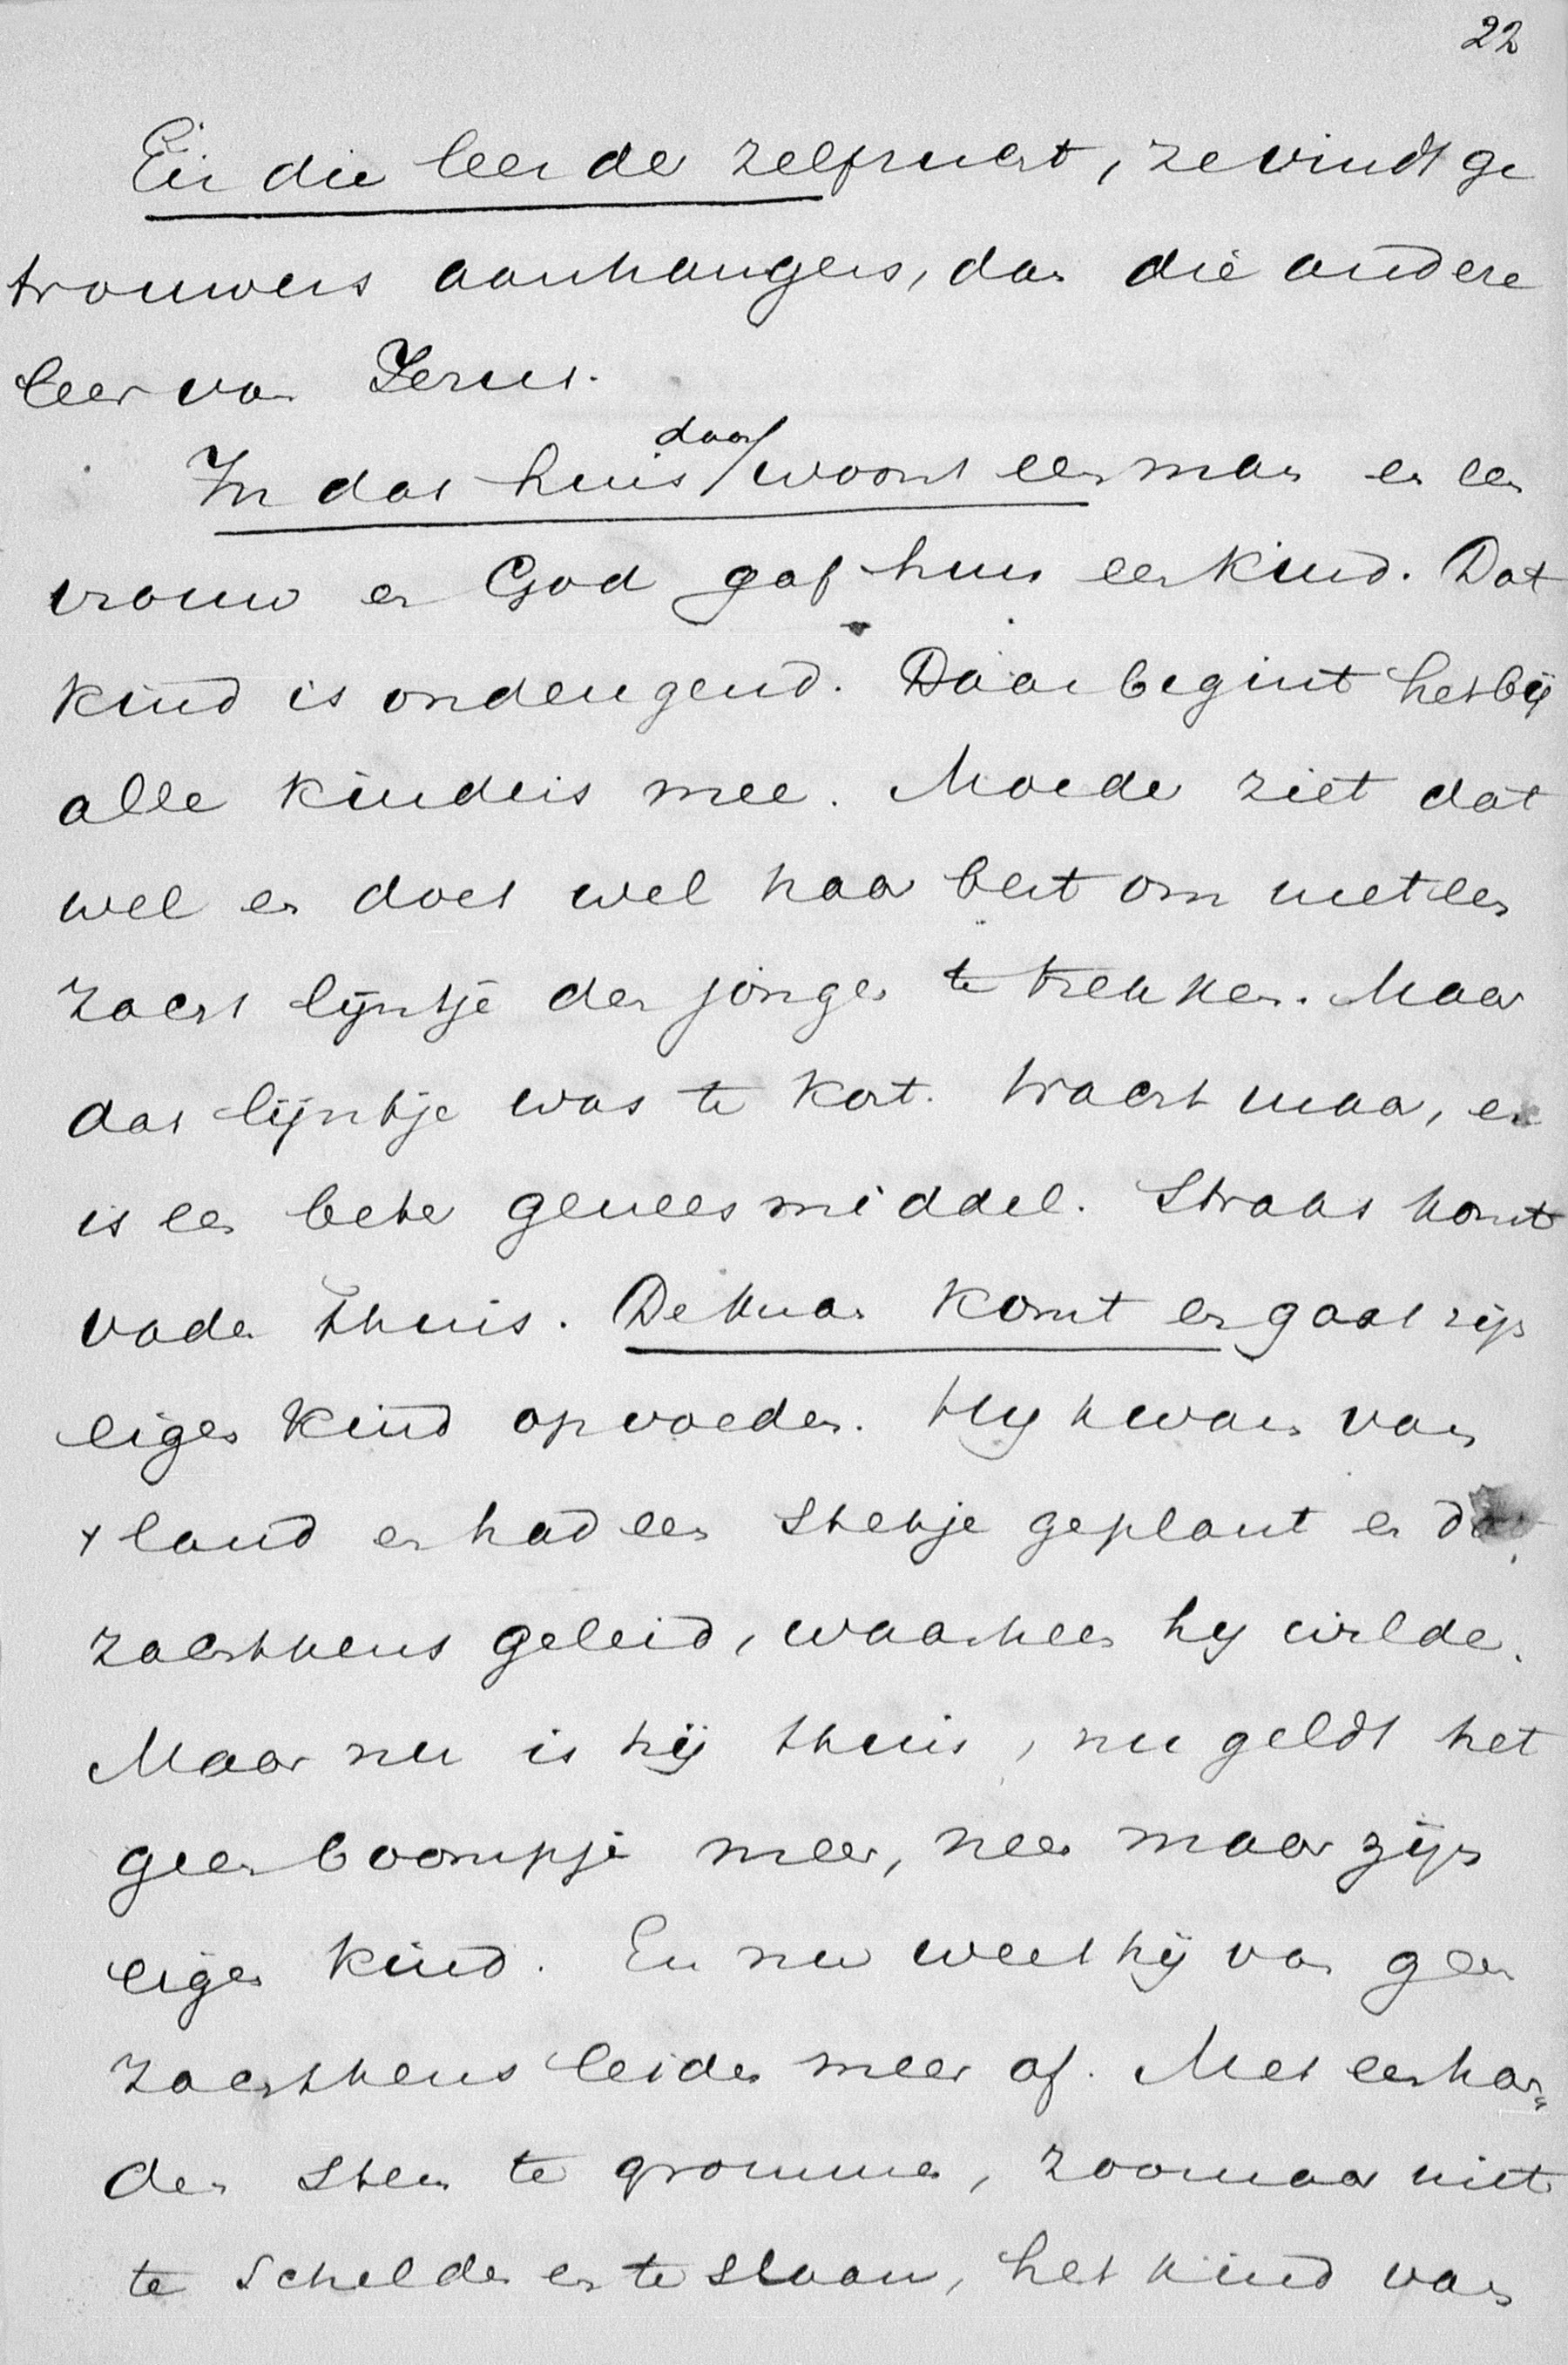 22
En die leer der zelfzucht, ze vindt ge
trouwers aanhangers, dan die andere
leer van Jezus.
In dat huis daar woont een man en een
vrouw en God gaf hun een kind. Dat
kind is ondeugend. Daar begint het bij
alle kinders mee. Moeder ziet dat
wel en doet wel haar best om met een
zacht lijntje den jongen te trekken. Maar
dat lijntje was te kort. Wacht maar, er
is een beter geneesmiddel. Straks komt
vader thuis. De man komt en gaat zijn
eigen kind opvoeden. Hij kwam van
't land en had een stekje geplant en dat
zachtkens geleid, waarheen hij wilde.
Maar nu is hij thuis, nu geldt het
geen boompje meer, neen maar zijn
eigen kind. En nu weet hij van geen
zachtkens leiden meer af. Met een har„
den stem te grommen, zoomaar niet
te schelden en te slaan, het kind van